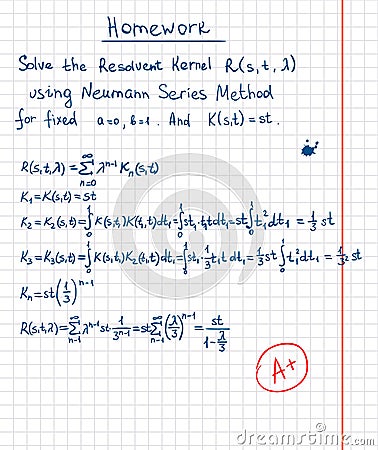 Homework
Solve the Resolvent Kernel R(s, t, λ)
using Neumann Series Method
for fixed a=0, b=1. And K(s,t)=st.
R(s,t,λ)=∑_{n=0}^{∞} λ^{n-1} K_n(s,t)
K₁=K(s,t)=st
K₂=K₂(s,t)=∫₀¹K(s,t₁)K(t₁,t)dt₁=∫₀¹st₁·t₁tdt₁=st∫₀¹t₁²dt₁=1/3 st
K₃=K₃(s,t)=∫₀¹K(s,t₁)K₂(t₁,t)dt₁=∫₀¹st₁·1/3 t₁t dt₁=1/3 st∫₀¹t₁²dt₁=1/3² st
K_n=st(1/3)^{n-1}
R(s,t,λ)=∑_{n-1}^{∞} λ^{n-1}st·1/3^{n-1}=st∑_{n-1}^{∞}(λ/3)^{n-1}=st/(1-λ/3)
A+
dreamstime.com